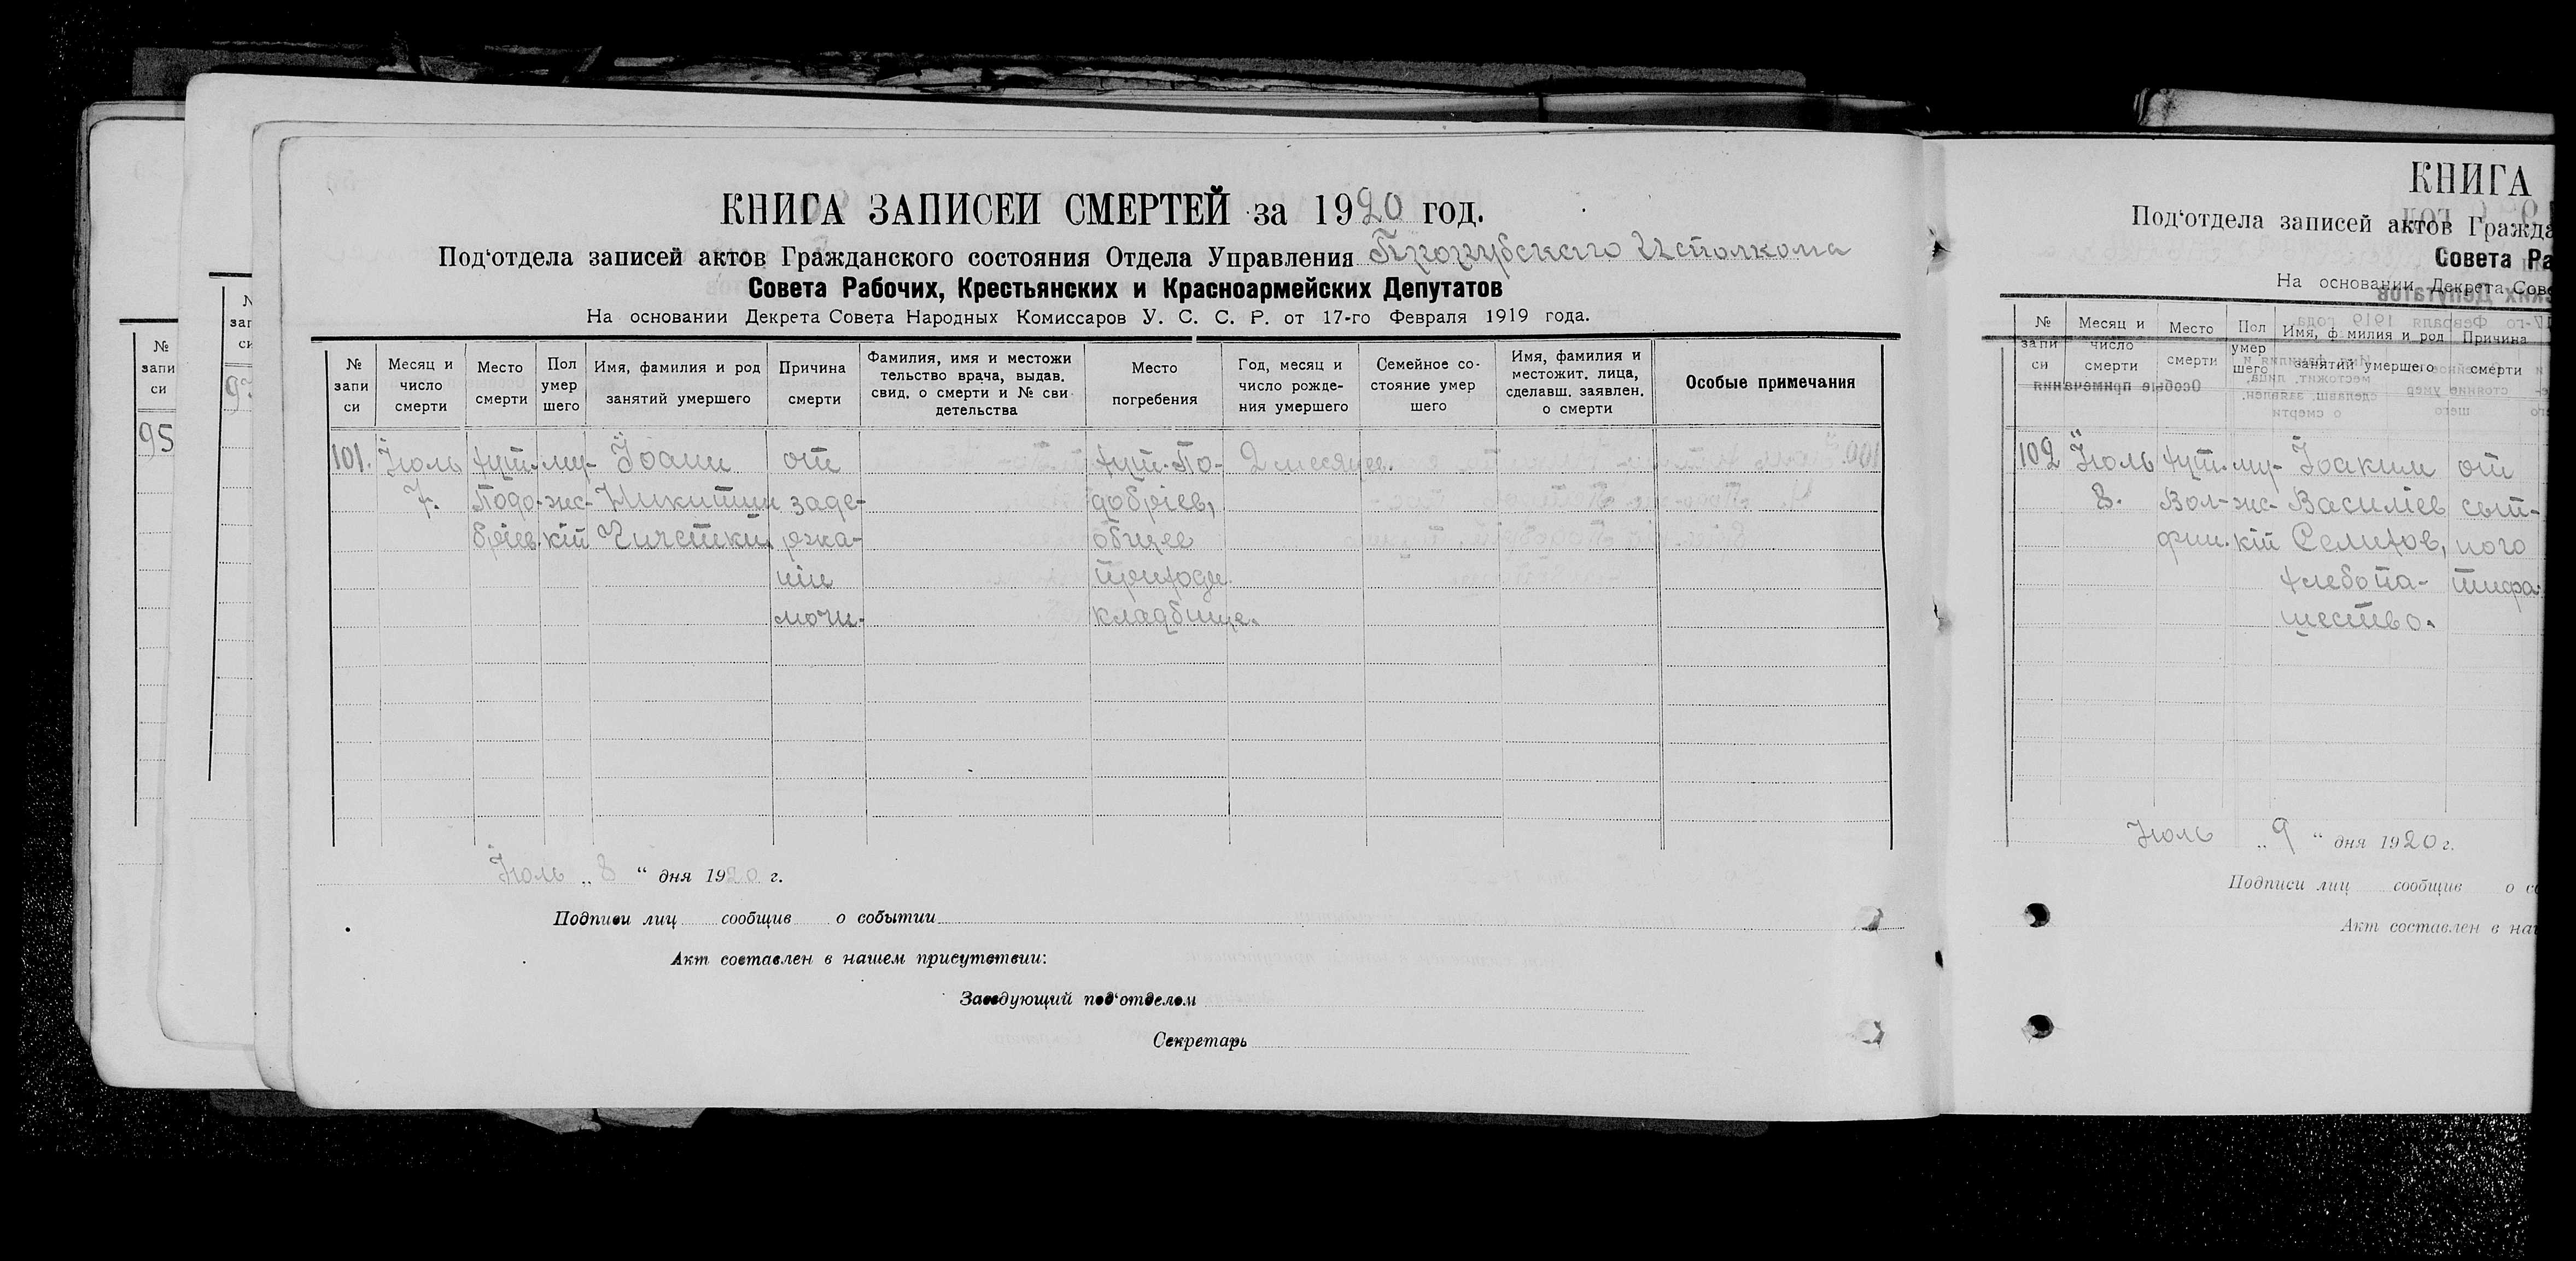 КНИГА ЗАПИСЕЙ СМЕРТЕЙ за 1920 год.
Под‘отдела записей актов Гражданского состояния Отдела Управления Исполкома
Совета Рабочих, Крестьянских и Красноармейских Депутатов
На основании Декрета Совета Народных Комиссаров У. С. С. Р. от 17-го Февраля 1919 года.
№ запи си
Месяц и число смерти
Место смерти
Пол умер шего
Имя, фамилия и род занятий умершего
Причина смерти
Фамилия, имя и местожи тельство врача, выдав. свид. о смерти и № сви детельства
Место погребения
Год, месяц и число рожде- ния умершего
Семейное со- стояние умер шего
Имя, фамилия и местожит. лица, сделавш. заявлен. о смерти
Особые примечания
101. Іюль хут. му- Іоанн от хут. По- 2 месяцев.
7. Подо- жс- Никитин заде- добріев,
бріев. кій ржа- общее
ніи приходс.
мочи. кладбище.
Іюль „ 8 “ дня 1920 г.
Подписи лиц сообщив о событии
Акт составлен в нашем присутствии:
Заведующий под‘отделом
Секретарь
№ запи си
95
№ зап си
97
КНИГА
Под‘отдела записей актов Гражда
Совета Ра
На основании Декрета Сове
№ запи си
Месяц и число смерти
Место смерти
Пол умер шего
Имя, фамилия и род занятий умершего
Причина смерти
102 Іюль хут. му- Іоаким от
8. Вол- жс- Василіев сып-
фин. кій Селихов, ного
хлебопа- тифа.
шество.
Іюль „ 9 “ дня 1920 г.
Подписи лиц сообщив о со
Акт составлен в наш